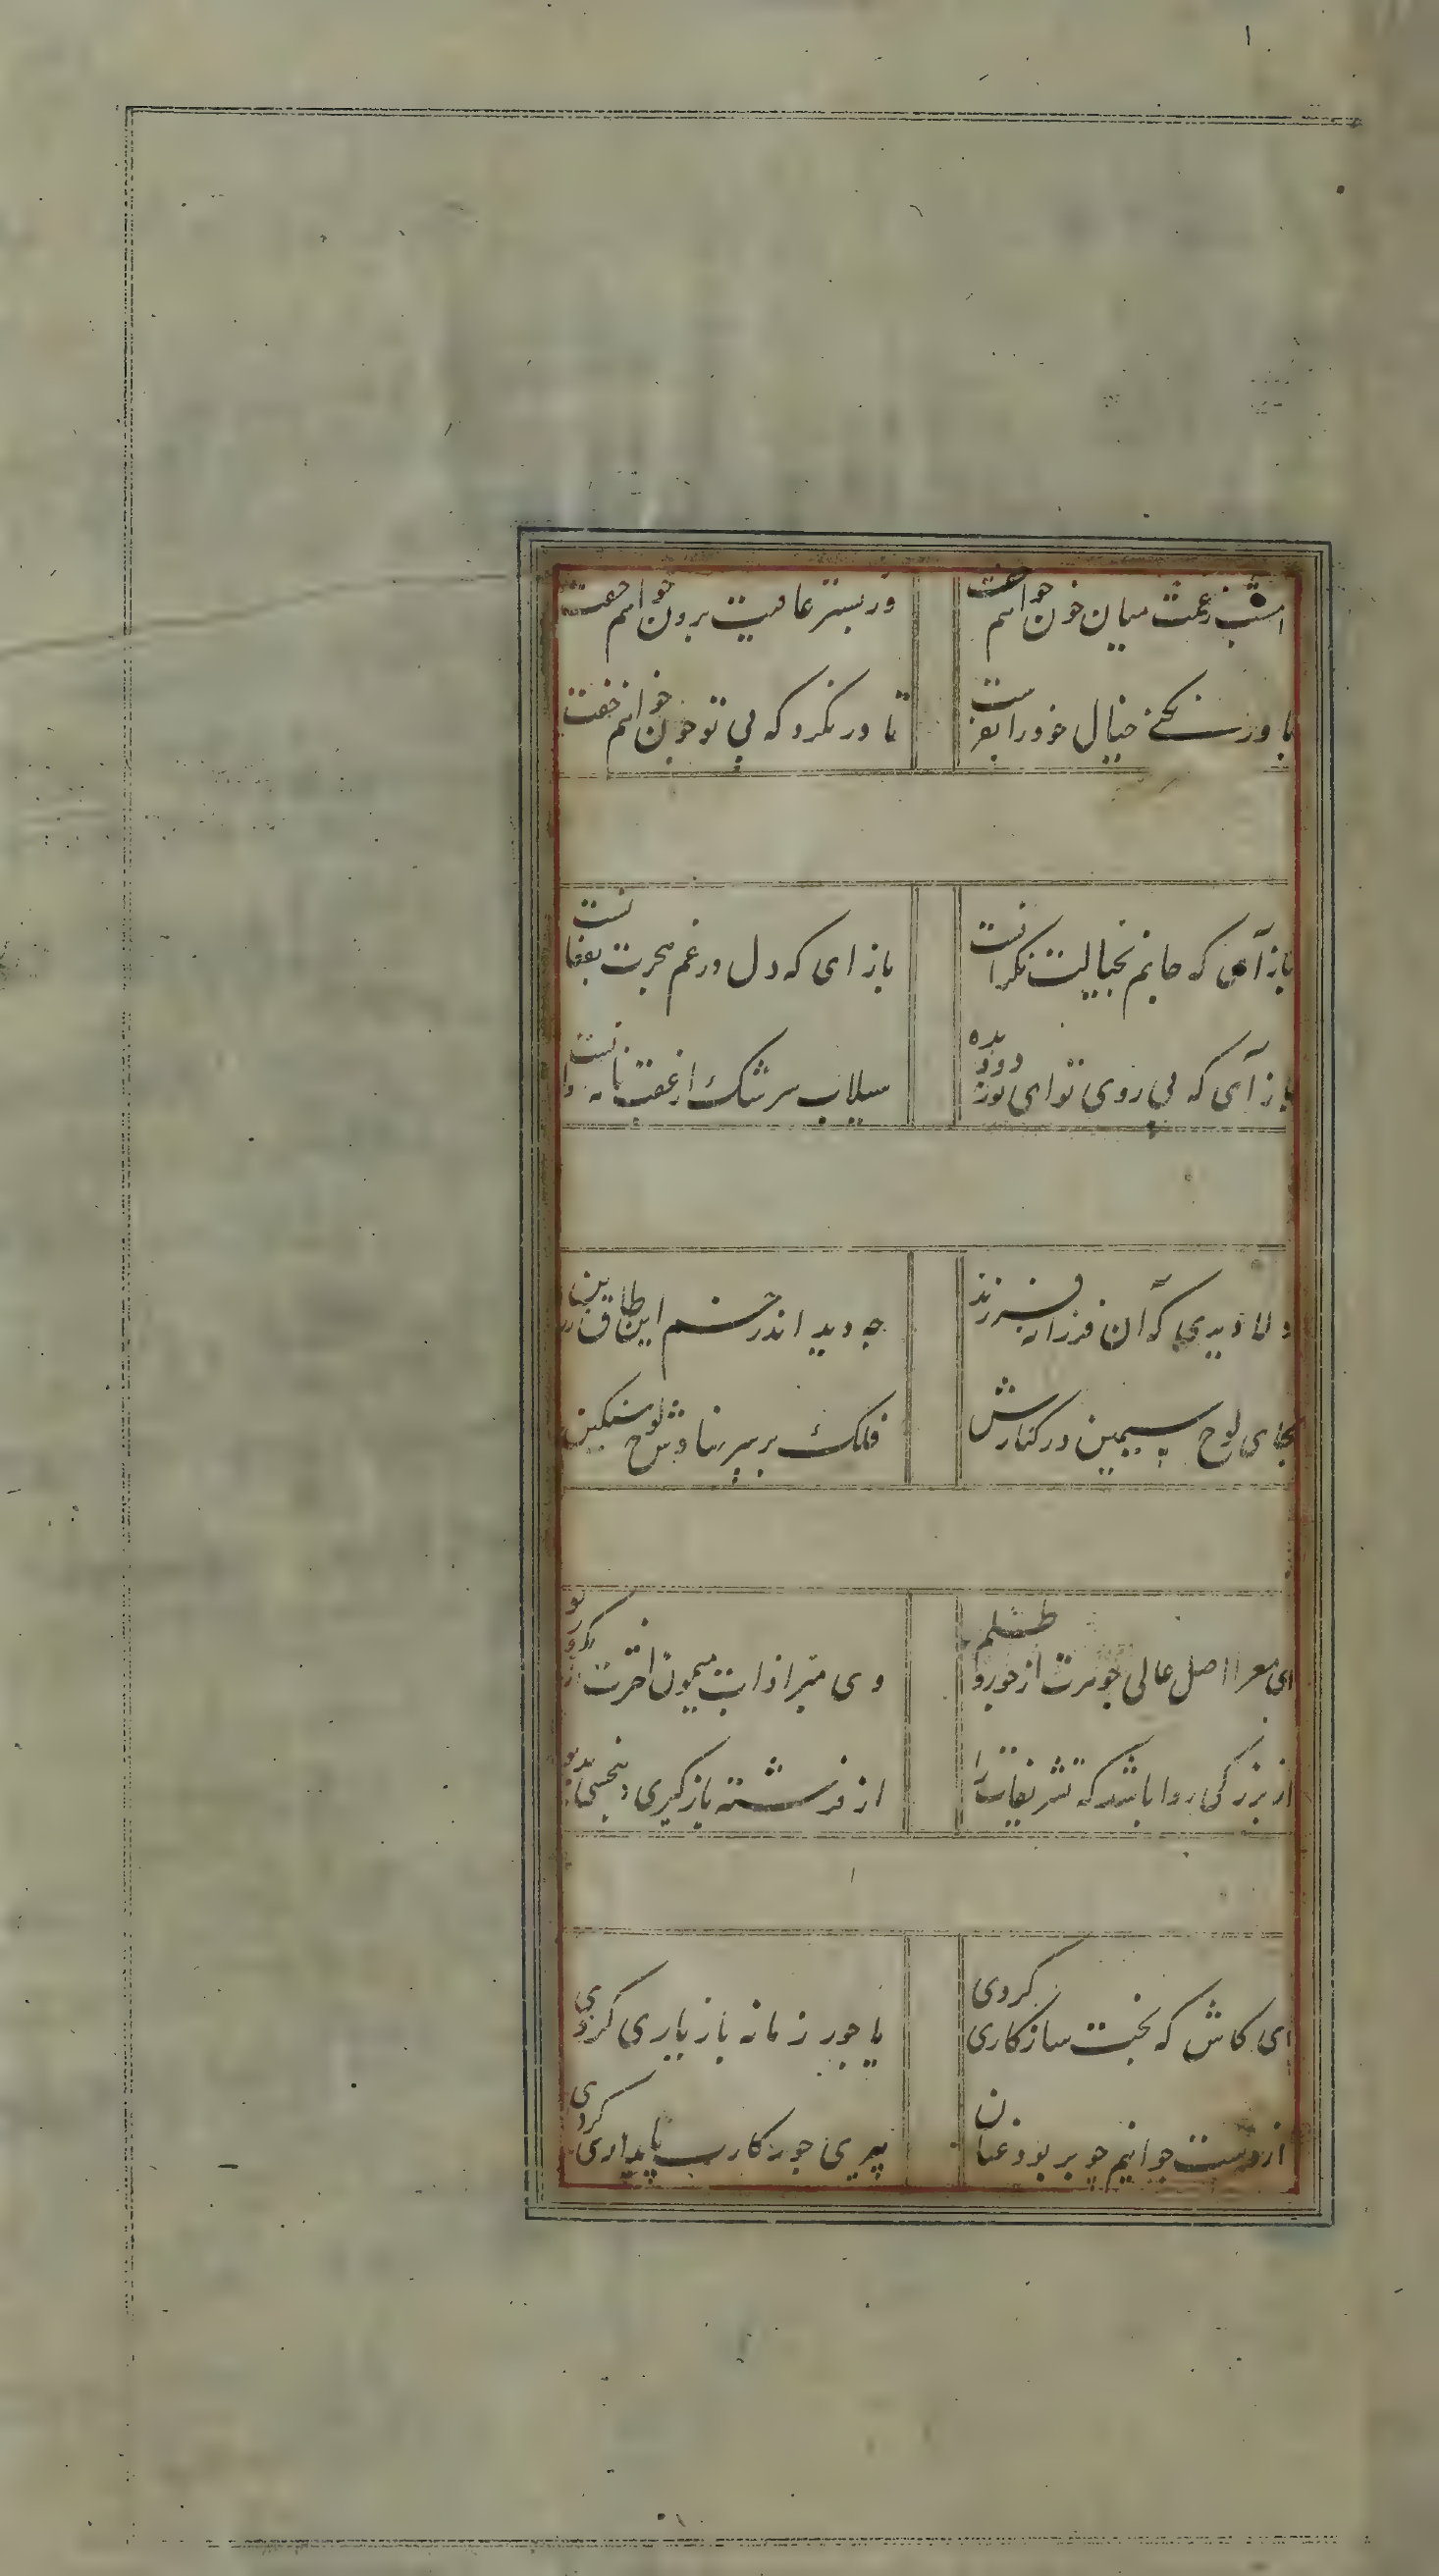 امشب ز غمت میان خون خواهم خفت
وز بستر عافیت برون خواهم خفت
باور نکنی خیال خود را بفرست
تا در نگرد که بی تو چون خواهم خفت
باز آی که جانم بجمالت نگرانست
باز ای که دل در غم هجرت بفغانست
باز آی که بی روی تو ای نور دو دیده
سیلاب سرشک از عقب نامه روانست
دلا دیدی که آن فرزانه فرزند
چه دید اندر خم این طاق رنگین
بجای لوح سیمین در کنارش
فلک بر سر نهادش لوح سنگین
ای معرا اصل عالی جوهرت از جور و ظلم
وی مبرا ذات میمون اخترت از زرق و ریو
از بزرگی روا باشد که تشریفات را
از فرشته بازگیری و ببخشی بدیو
ای کاش که بخت سازکاری کردی
با جور زمانه باز یاری کردی
از دست جوانیم چو بربود عنان
پیری چو رکاب پایداری کردی